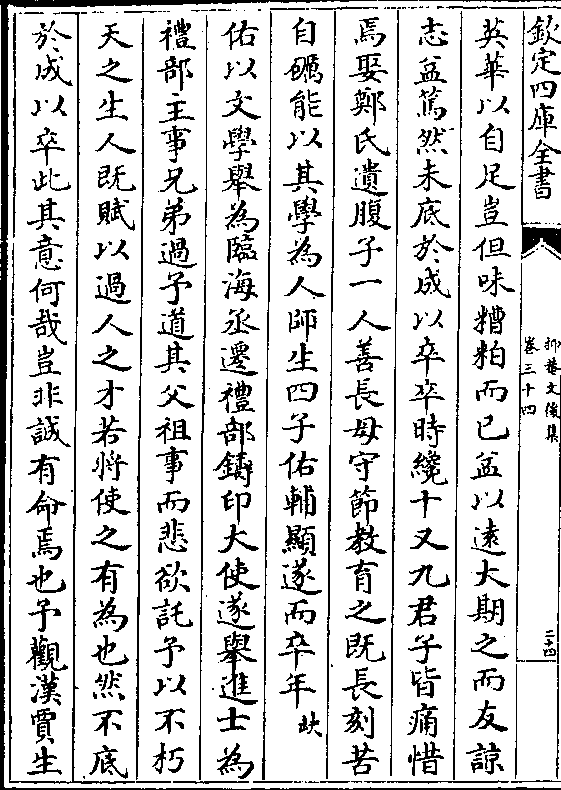 欽定四庫全書
抑菴文後集
卷三十四
二十四
英華以自足豈但味糟粕而已益以遠大期之而友諒
志益篤然未底於成以卒卒時纔十又九君子皆痛惜
焉娶鄭氏遺腹子一人善長母守節教育之既長刻苦
自礪能以其學為人師生四子佑輔顯遂而卒年闕
佑以文學舉為臨海丞遷禮部鑄印大使遂舉進士為
禮部主事兄弟過予道其父祖事而悲欲託予以不朽
天之生人既賦以過人之才若將使之有為也然不底
於成以卒此其意何哉豈非誠有命焉也予觀漢賈生